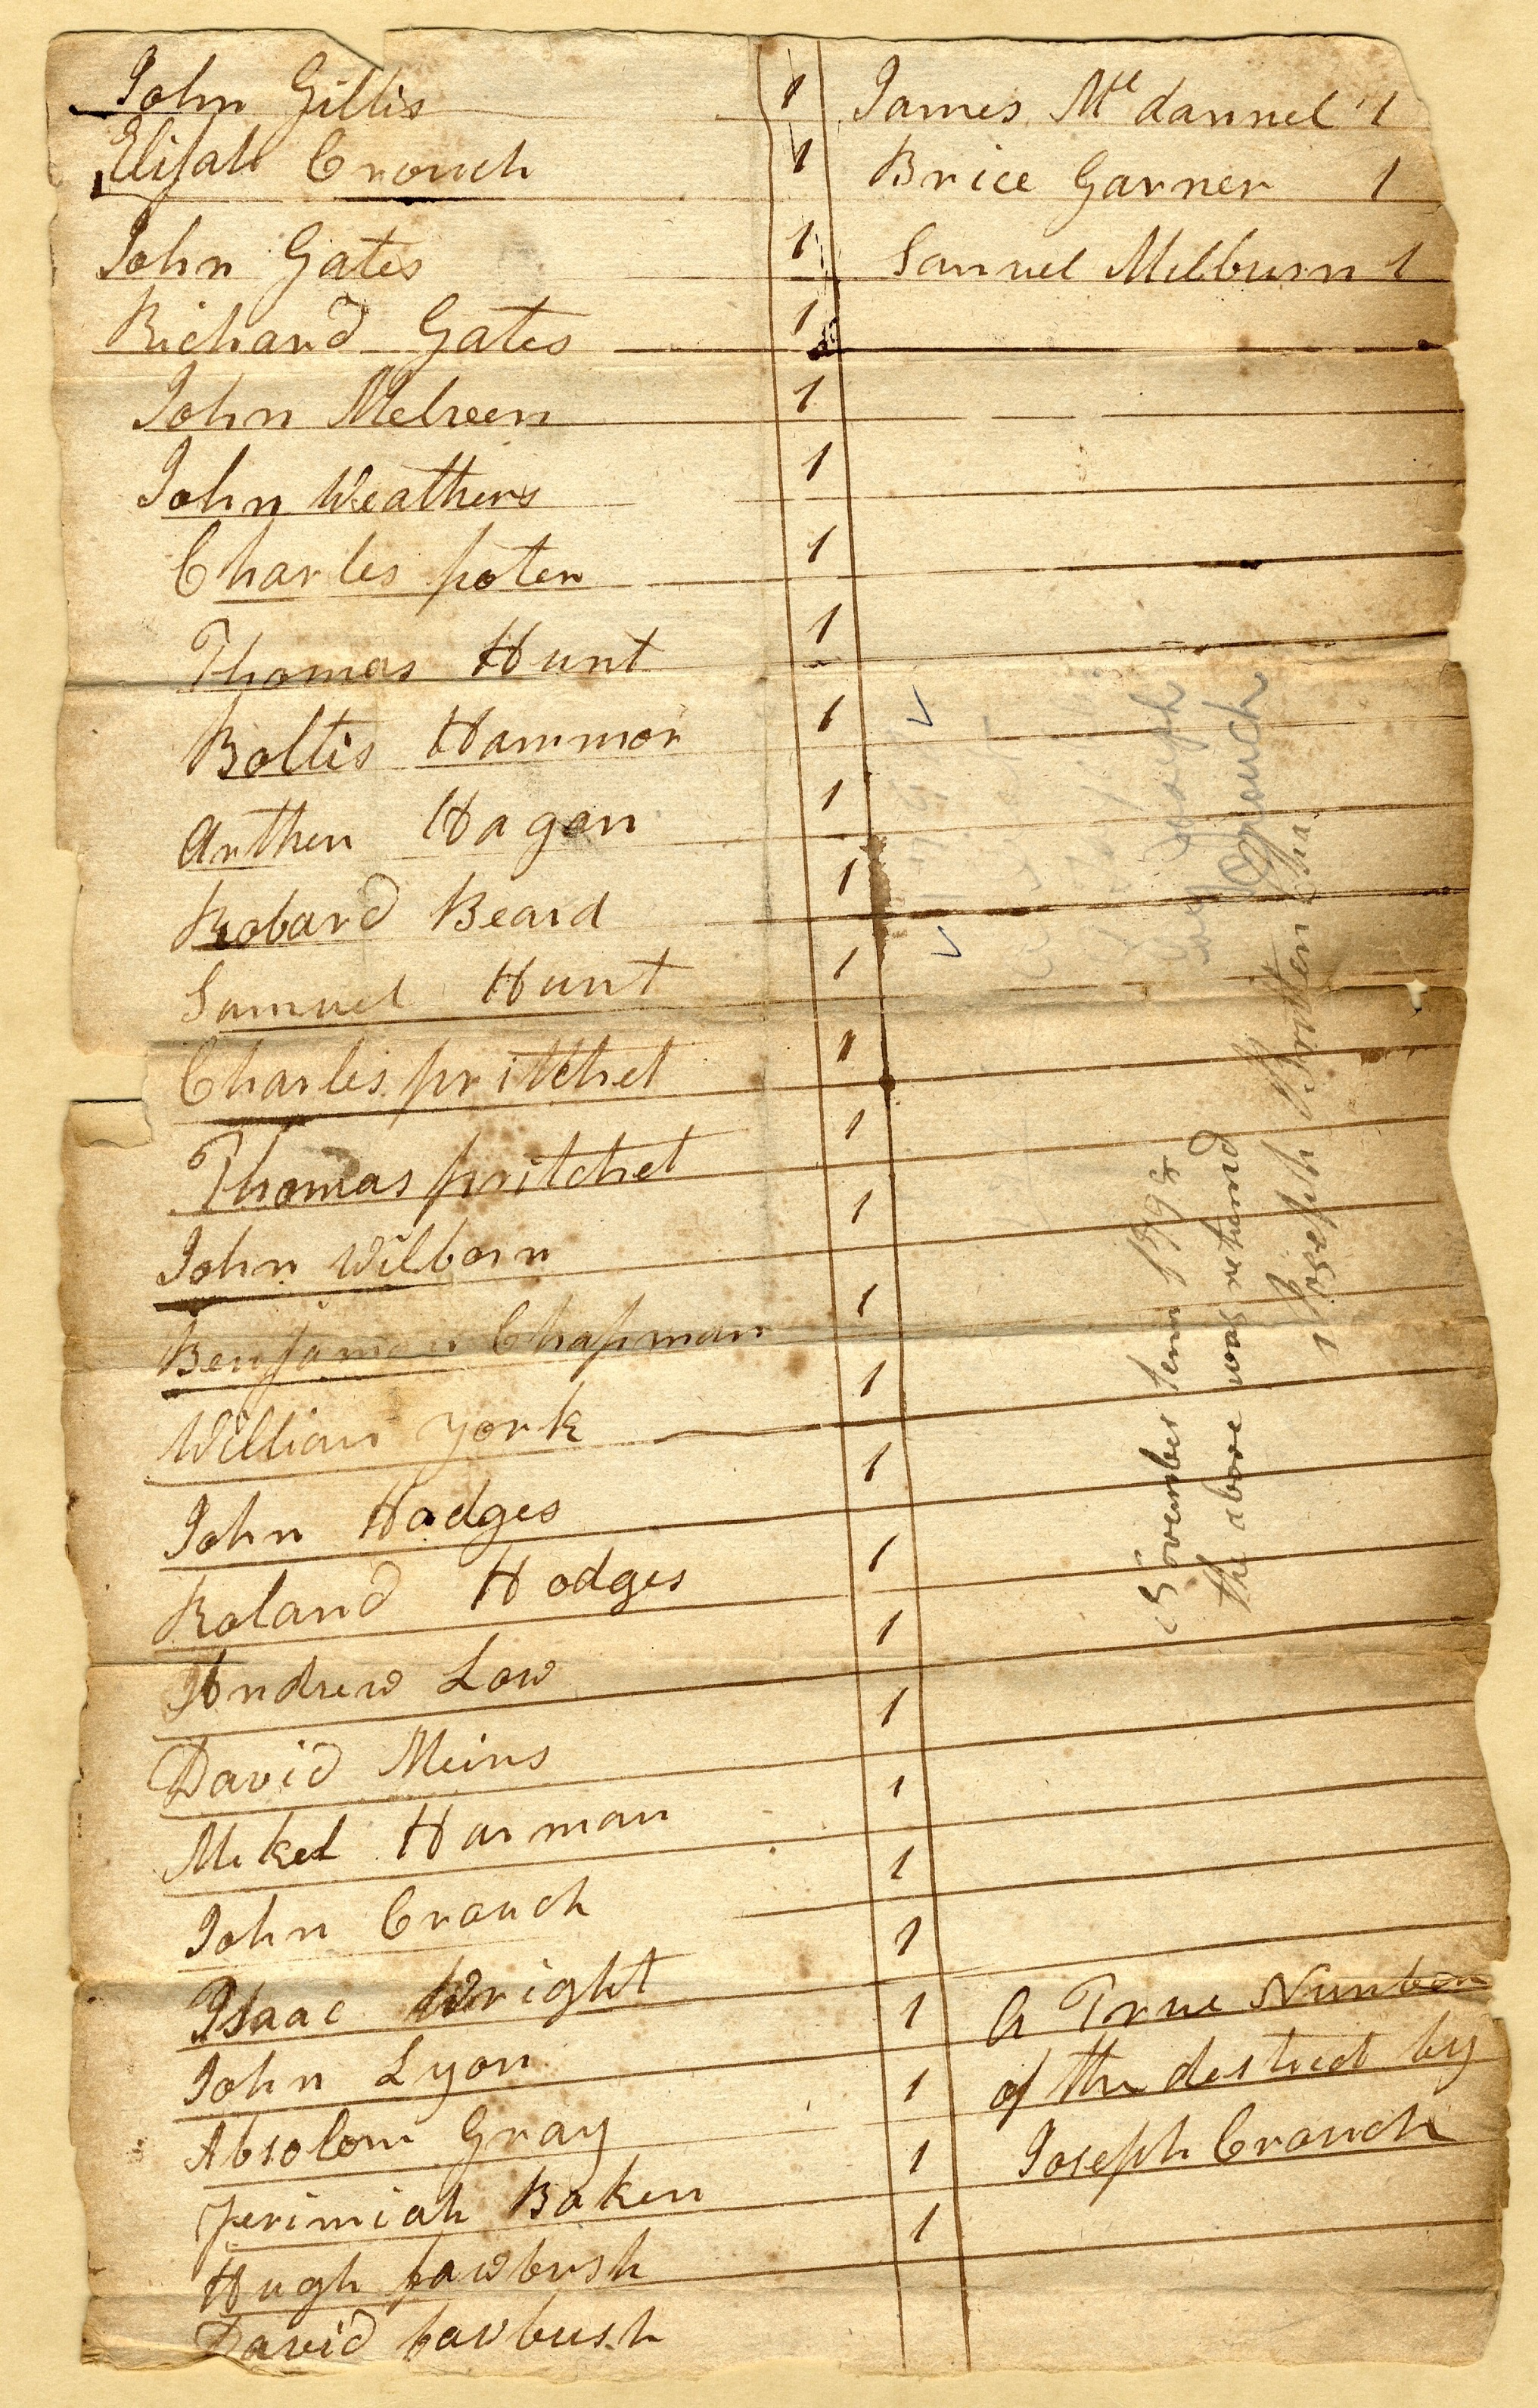 John Gillis 1
Elijah Crouch 1
John Gates 1
Richard Gates 1
John Melveen 1
John Weathers 1
Charles poter 1
Thomas Hunt 1
Boltis Hammon 1
Arther Hagan 1
Robard Beard 1
Samuel Hunt 1
Charles pritchet 1
Thomas pritchet 1
John Wilborn 1
Benjaman Chapman 1
William york 1
John Hodges 1
Roland Hodges 1
Andrew Low 1
David Meins 1
Mikel Harman 1
John Crouch 1
Isaac Wright 1
John Lyon 1
Absolom Gray 1
Jerimiah Baker 1
Hugh fawbush 1
David fawbush
James Mc dannel 1
Brice Garner 1
Samuel Milburn 1
Joseph
Crouch
November term 1798
the above was returned
Joseph
A True Number
of the destrict by
Joseph Crouch